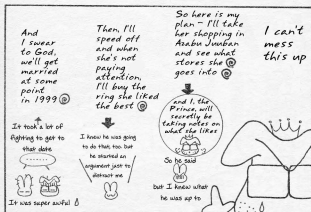 And
I swear
to God,
we'll get
married
at some
point
in 1999
It took a lot of
fighting to get to
that date
It was super awful
Then, I'll
speed off
and when
she's not
paying
attention,
I'll buy the
ring she liked
the best
I knew he was going
to do that too but
he started an
argument just to
distract me
So here is my
plan - I'll take
her shopping in
Azabu Juuban
and see what
stores she
goes into
and I, the
Prince, will
secretly be
taking notes on
what she likes
So he said
but I knew what
he was up to
I can't
mess
this up